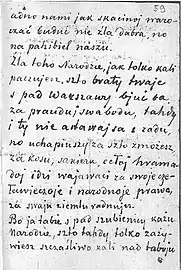 59
adno nami jak skacinoj naro-
czać buduć nie dla dabra, no
na pahibiel naszu.
Dla toho Narodzie, jak tolko kali
paczujesz, szto braty twaje
s pad Warszawy bjuć sia
za praudu i swabodu, tahdy
i ty nie astawajsia s zadu,
no uchapiuszy za szto zmożesz
za kosu, sakieru, cełoj hrama-
doj idzi wajawaci za swoje
czeławieczeje i narodnoje prawo,
za swaju ziemlu radnuju.
Bo ja tabie s pad szubienicy każu
Narodzie, szto tahdy tolko zaży-
wiesz szczaśliwo kali nad taboju